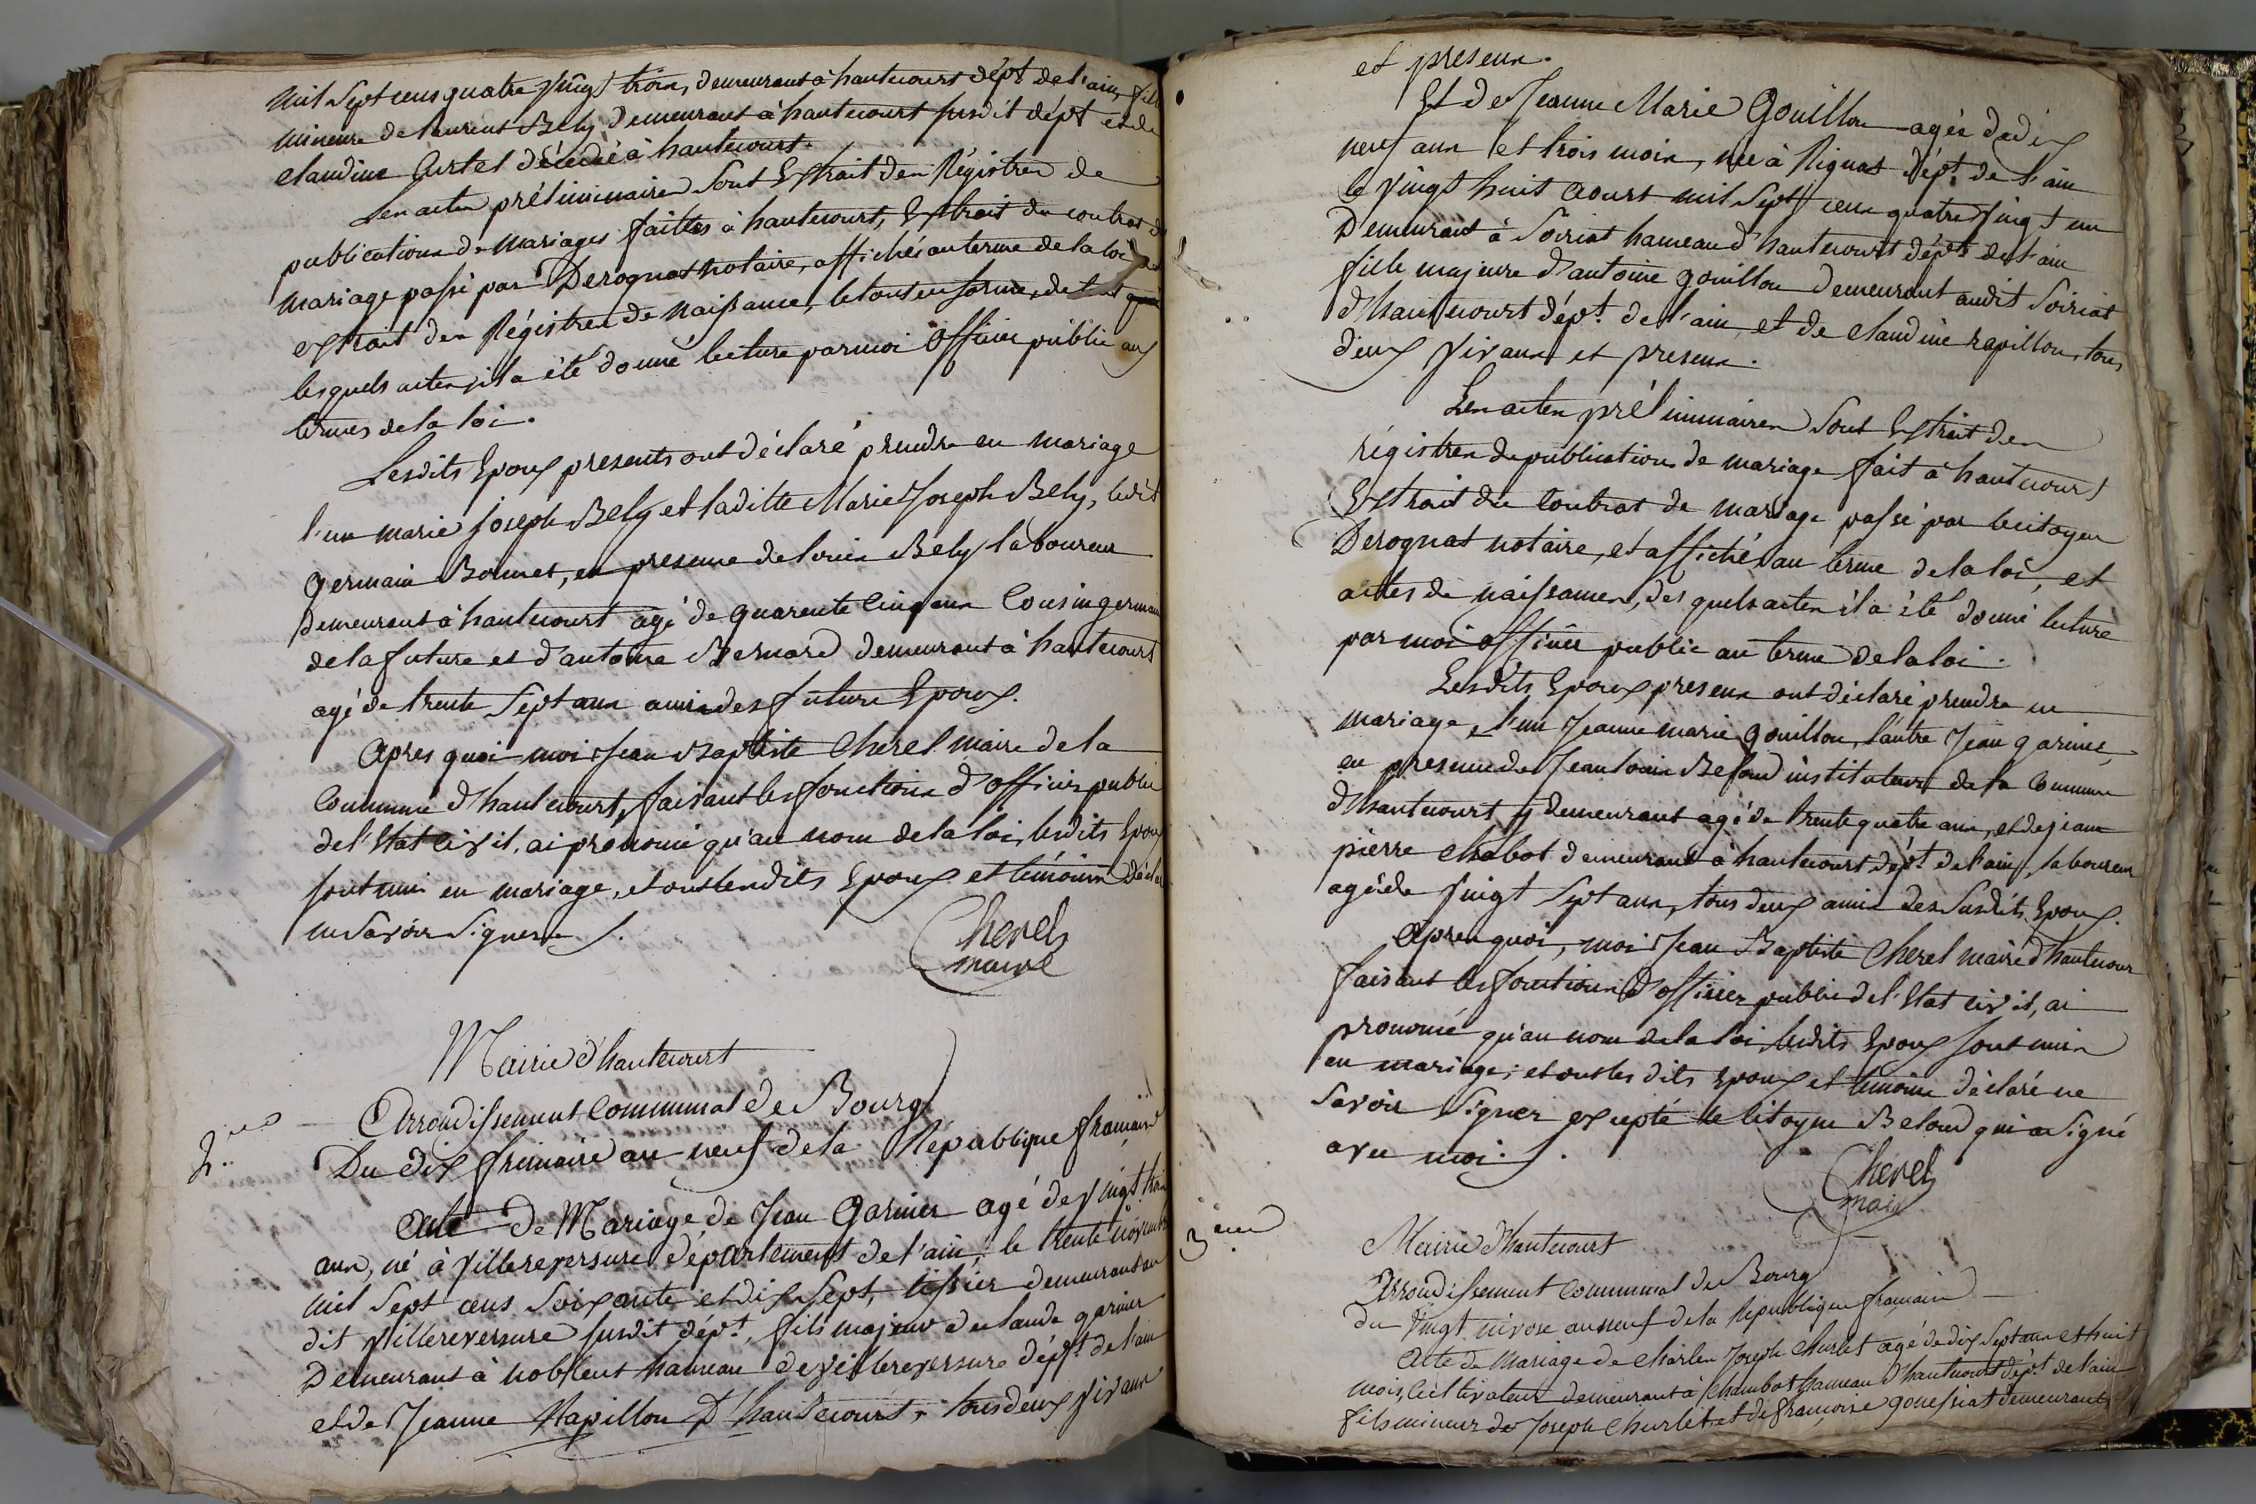 mil Sept cens quatre vingt trois, demeurant à hautecourt dépt de l'ain, fille
mineure de laurent Bely demeurant à hautecourt susdit dépt et de
claudine Curtet décédé à hautecourt.
Les actes préliminaires sont Extrait des Régistres de
publications de mariages faittes à hautecourt, Extrait du contrat de
mariage passé par Derognat notaire, affichés au terme de la loi
extrait des Régistres de naissance, le tout en forme, de tout quoi
lesquels actes, il a été donné lecture par moi officier public aux
termes de la loi.
Lesdits Epoux presents ont déclaré prendre en mariage
l'un marie joseph Bely et laditte Marie Joseph Bely, ledit
germain Bonnet, en presence de louis Bely laboureur
demeurant à hautecourt agé de quarente cinq ans Cousin germain
de la future et d'antoine Bernard demeurant à hautecourt
agé de trente Sept ans amis des futurs Epoux.
Apres quoi moi Jean Baptiste Cherel maire de la
Commune d'hautecourt, faisant les fonctions d'officier public
de l'Etat civil, ai prononcé qu'au nom de la loi, lesdits Epoux
sont unis en mariage, et ont lesdits Epoux et témoins déclaré
ne Savoir Signer
Cherel
maire
Mairie d'hautecourt
Arrondissement Communal de Bourg
2.
Du dix frimaire an neuf de la République française
Acte de Mariage de Jean Garnier agé de vingt trois
ans, né à Villereversure département de l'ain, le trente novembre
mil Sept cens Soixante et dix Sept, tissier demeurant au
dit Villereversure susdit dépt, fils majeur de claude garnier
Demeurant à noblens hameau de villereversure dépt de l'ain
et de Jeanne Rapillon D'hautecourt, tous deux vivans
et presens.
Et de Jeanne Marie Gouillon agée de dix
neuf ans et trois mois, née à Rignat dépt de l'ain
le vingt huit aoust mil Sept cens quatre vingt un
Demeurant à Soiriat hameau d'hautecourt dépt de l'ain
fille majeure d'antoine gouillon demeurant audit Soiriat
d'hautecourt dépt de l'ain, et de claudine rapillon, tous
deux vivans et presens.
Les actes préliminaires sont Extrait des
régistres de publications de mariage fait à hautecourt
Extrait du Contrat de mariage passé par le citoyen
Derognat notaire, et affichés au terme de la loi, et
actes de naissances, desquels actes il a été donné lecture
par moi officier public au terme de la loi.
Lesdits Epoux presens ont déclaré prendre en
mariage, l'un Jeanne marie gouillon, l'autre Jean garnier,
en presence de Jean louis Beloud instituteur de la Commune
d'hautecourt y demeurant agé de trente quatre ans, et de jean
pierre chabot demeurant à hautecourt dépt de l'ain, laboureur
agé de vingt Sept ans, tous deux amis des Susdits Epoux.
Apres quoi, moi Jean Baptiste Cherel maire d'hautecour
faisant les fonctions d'officier public de l'Etat civil, ai
prononcé qu'au nom de la loi, lesdits Epoux sont unis
en mariage; et ont les dits Epoux et témoins déclaré ne
Savoir Signer excepté le citoyen Beloud qui a Signé
avec moi.
Cherel
maire
3eme
Mairie d'hautecourt
Arrondissement Communal de Bourg
du vingt nivose an neuf de la République française
Acte de mariage de charles Joseph Churlet agé de dix Sept ans et huit
mois, Cultivateur demeurant à Chambot hameau d'hautecourt dépt de l'ain
fils mineur de Joseph Churlet et de françoise gonessiat demeurants